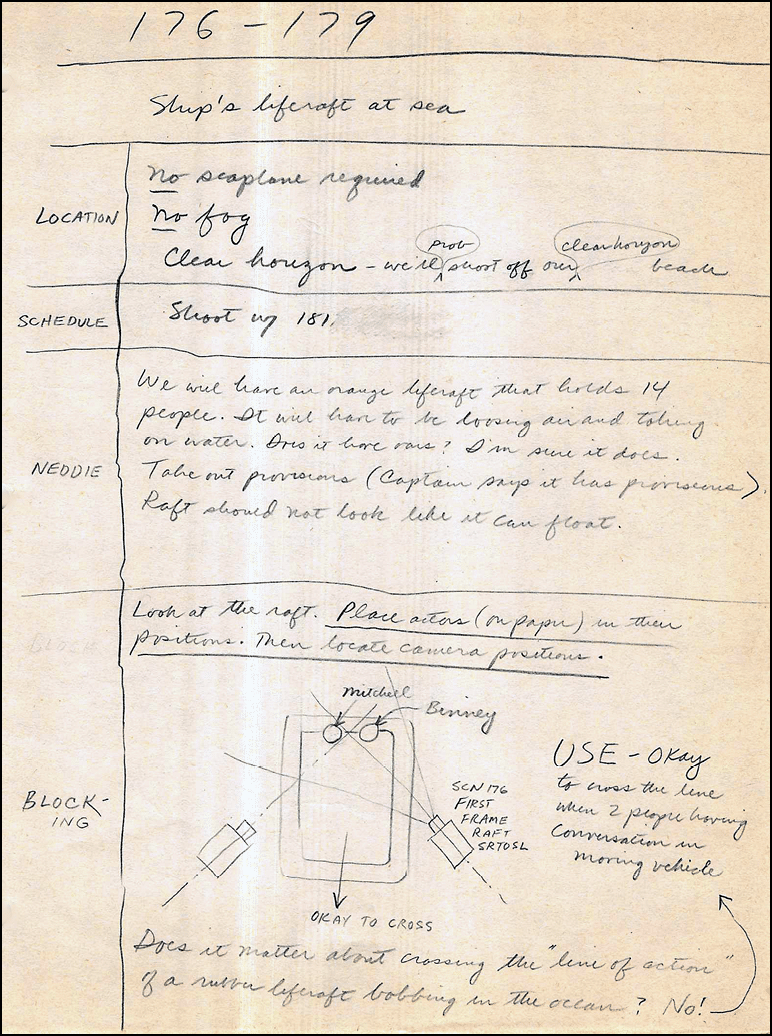 176-179
Ship's liferaft at sea
LOCATION
No seaplane required
No fog
prob
clear horizon
Clear horizon - we'll shoot off our beach
SCHEDULE
Shoot w/ 181
NEDDIE
We will have an orange liferaft that holds 14
people. It will have to be loosing air and taking
on water. Does it have oars? I'm sure it does.
Take out provisions (Captain says it has provisions).
Raft should not look like it can float.
Look at the raft. Place actors (on paper) in their
positions. Then locate camera positions.
BLOCK-
ING
Mitchell
Binney
SCN 176
FIRST
FRAME
RAFT
SRTOSL
USE - OKay
to cross the line
when 2 people having
conversation in
moving vehicle
OKAY TO CROSS
Does it matter about crossing the "line of action"
of a rubber liferaft bobbing in the ocean? No!